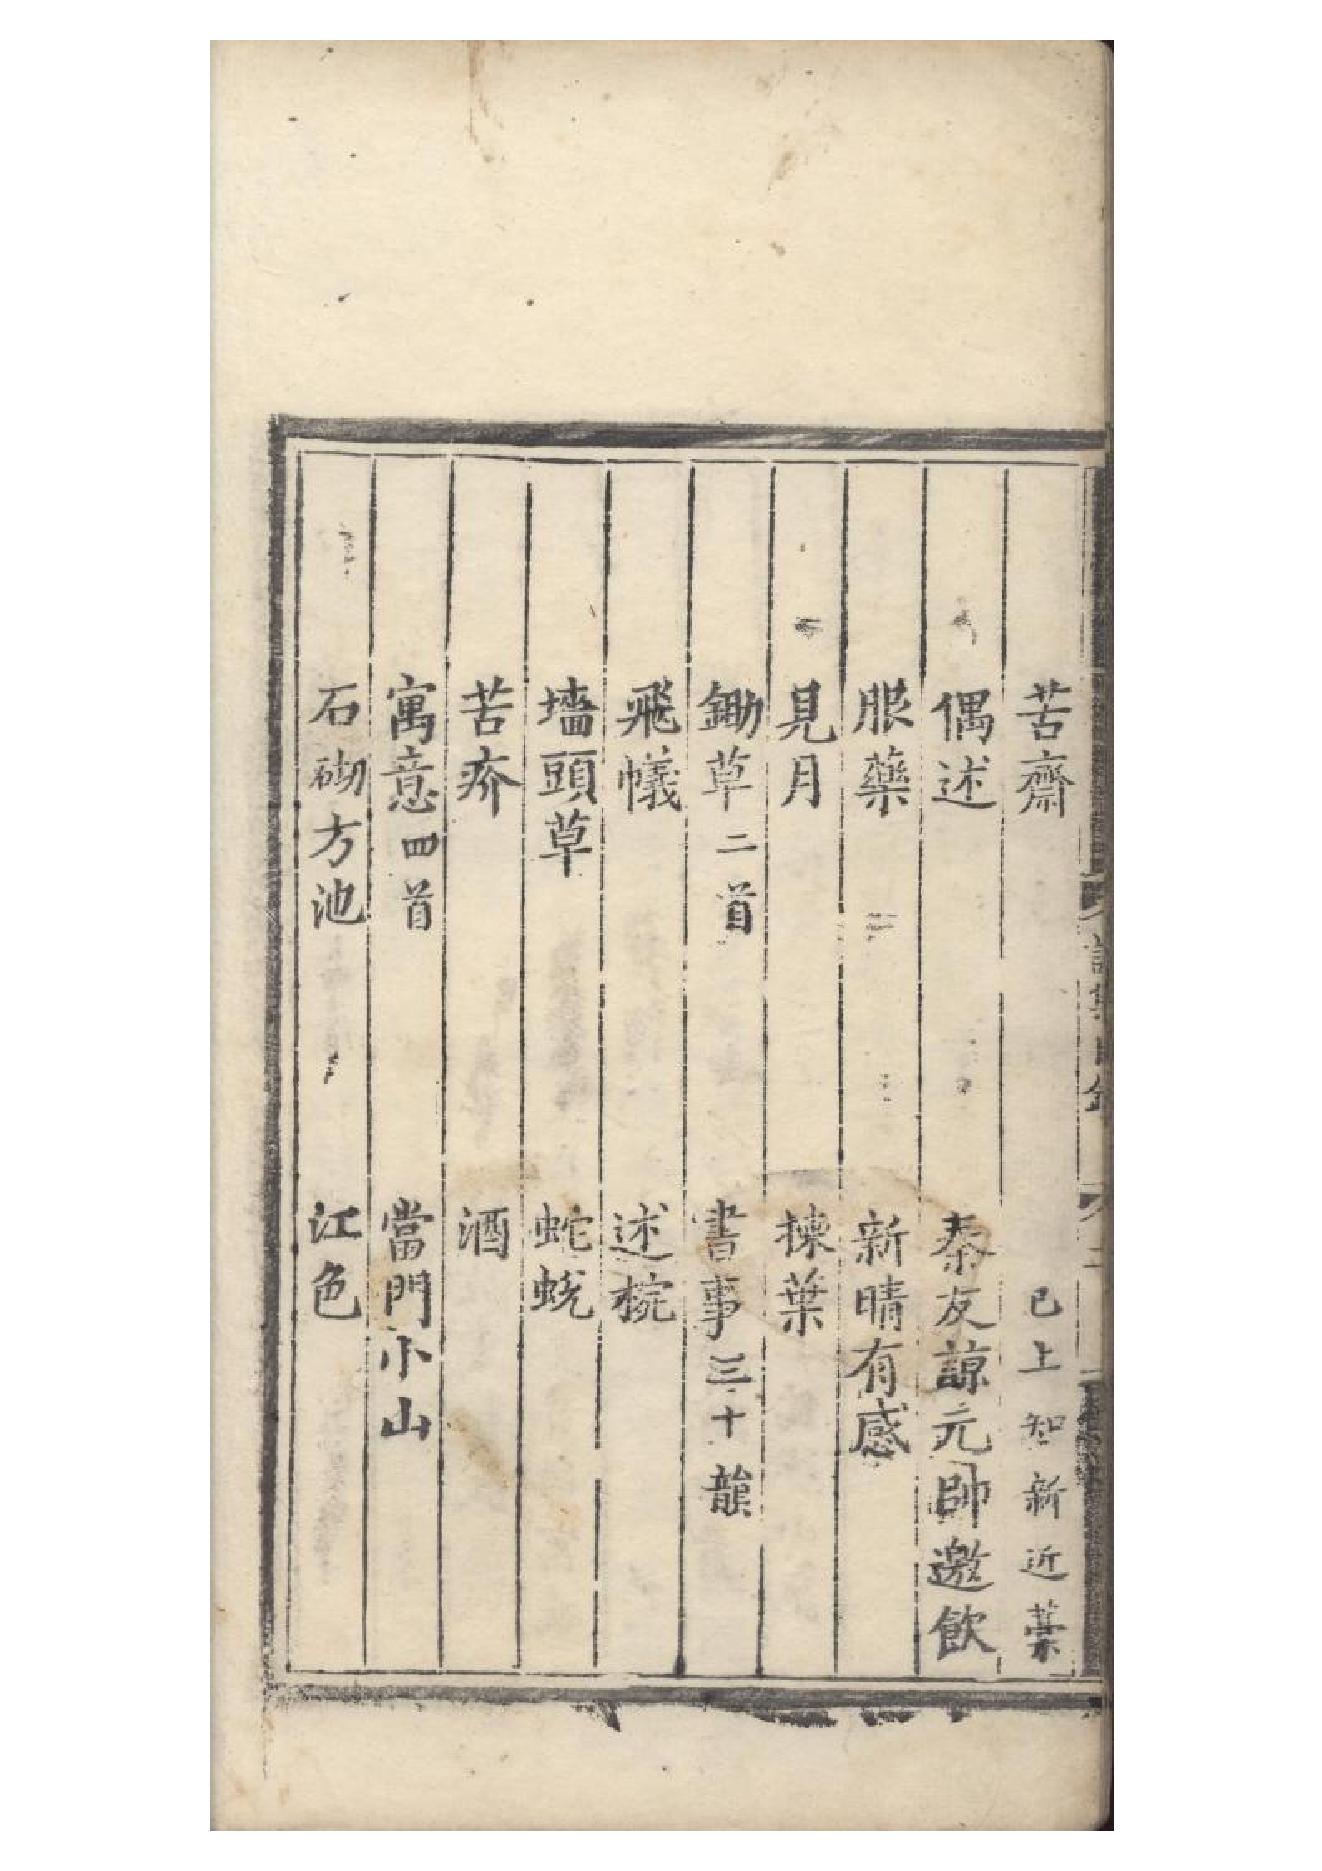 苦齋　已上知新近藁
偶述　秦友諒元帥邀飲
服藥　新晴有感
見月　揀葉
鋤草二首　書事三十韻
飛蟻　述梡
墻頭草　蛇蛻
苦疥　酒
寓意四首　當門小山
石砌方池　江色